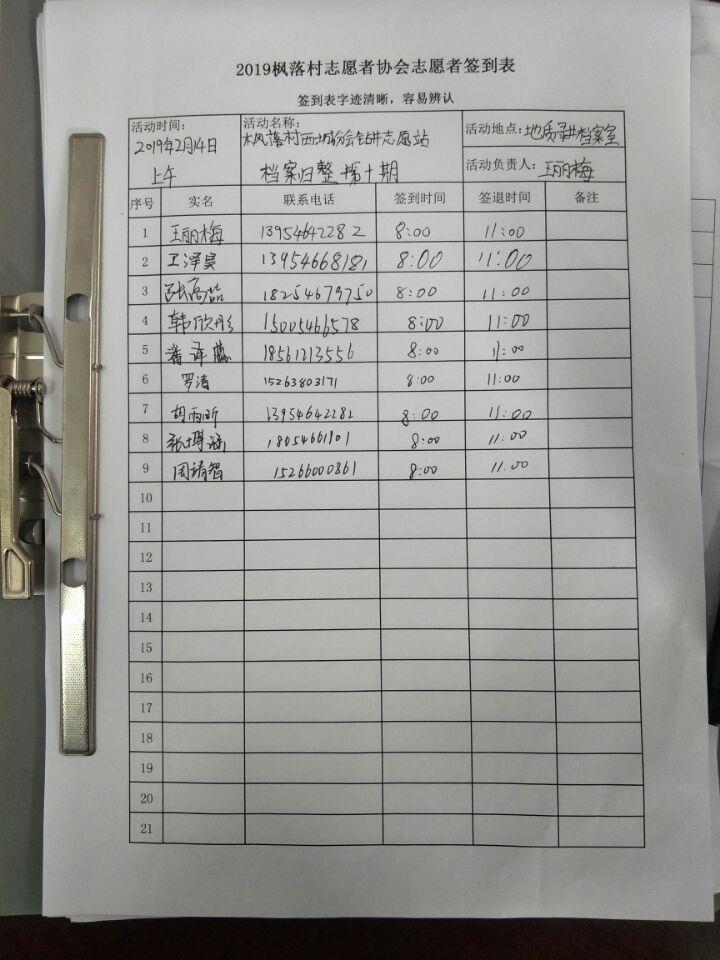 2019枫落村志愿者协会志愿者签到表
签到表字迹清晰，容易辨认
活动时间： 2019年2月14日 上午
活动名称： 枫落村西城分会钻井志愿站
档案归整第十期
活动地点：地质录井档案室
活动负责人：王丽梅
序号 实名 联系电话 签到时间 签退时间 备注
1 王丽梅 13954642282 8:00 11:00
2 卫泽昊 13954668181 8:00 11:00
3 18254679750 8:00 11:00
4 韩欣彤 15005466578 8:00 11:00
5 18561213556 8:00 11:00
6 罗清 15263803171 8:00 11:00
7 胡雨昕 13954642282 8:00 11:00
8 18054661901 8:00 11:00
9 周靖智 15266000861 8:00 11:00
10
11
12
13
14
15
16
17
18
19
20
21